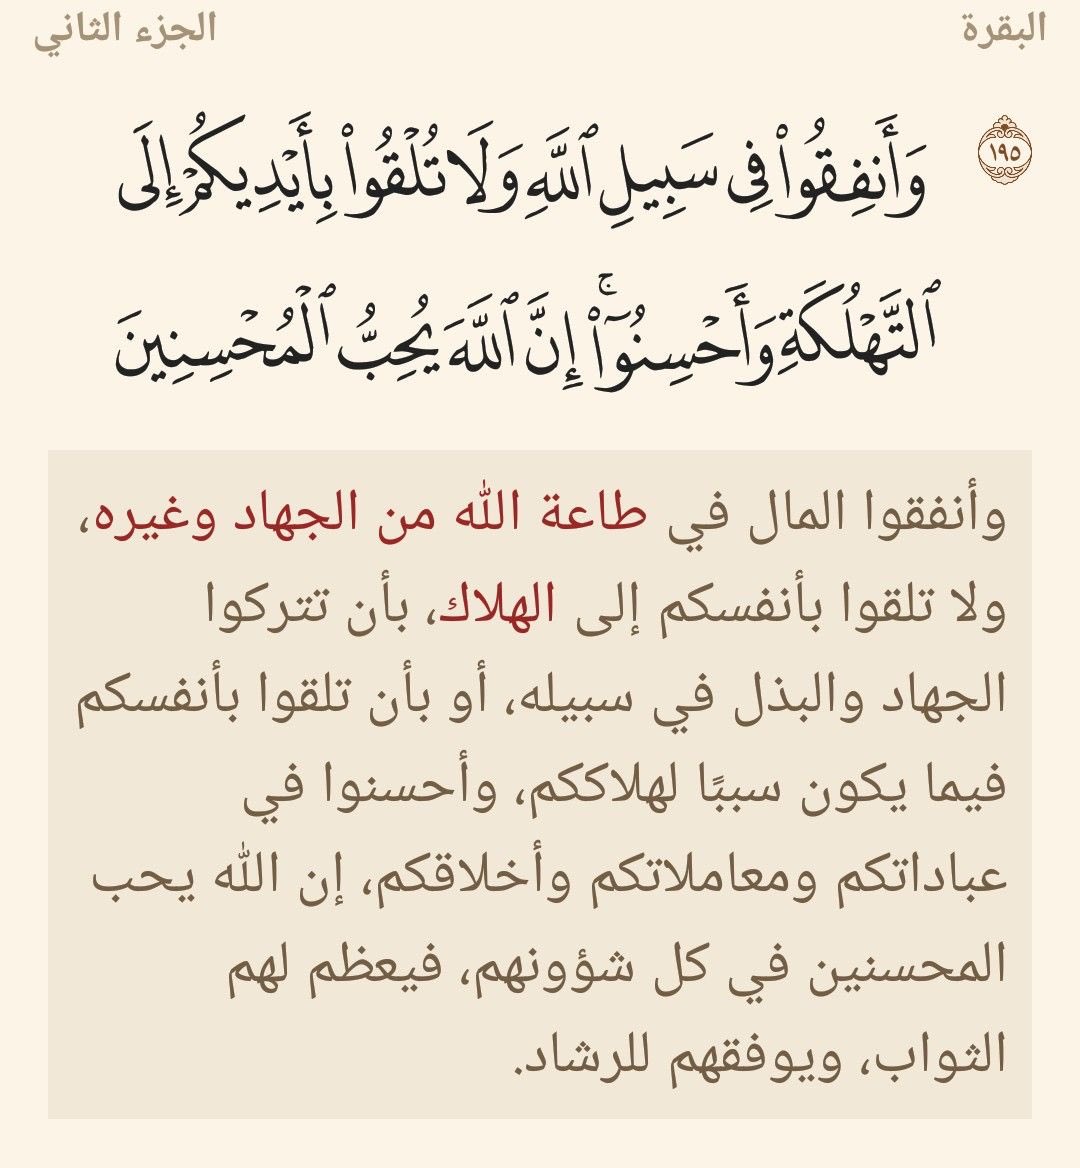 البقرة
الجزء الثاني
١٩٥
وَأَنفِقُوا۟ فِى سَبِيلِ ٱللَّهِ وَلَا تُلْقُوا۟ بِأَيْدِيكُمْ إِلَى
ٱلتَّهْلُكَةِ وَأَحْسِنُوٓا۟ ۚ إِنَّ ٱللَّهَ يُحِبُّ ٱلْمُحْسِنِينَ
وأنفقوا المال في طاعة الله من الجهاد وغيره،
ولا تلقوا بأنفسكم إلى الهلاك، بأن تتركوا
الجهاد والبذل في سبيله، أو بأن تلقوا بأنفسكم
فيما يكون سببًا لهلاككم، وأحسنوا في
عباداتكم ومعاملاتكم وأخلاقكم، إن الله يحب
المحسنين في كل شؤونهم، فيعظم لهم
الثواب، ويوفقهم للرشاد.